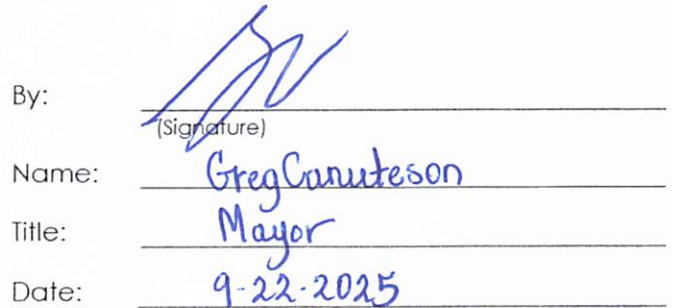 By:
(Signature)
Name: Greg Canuteson
Title: Mayor
Date: 9-22-2025